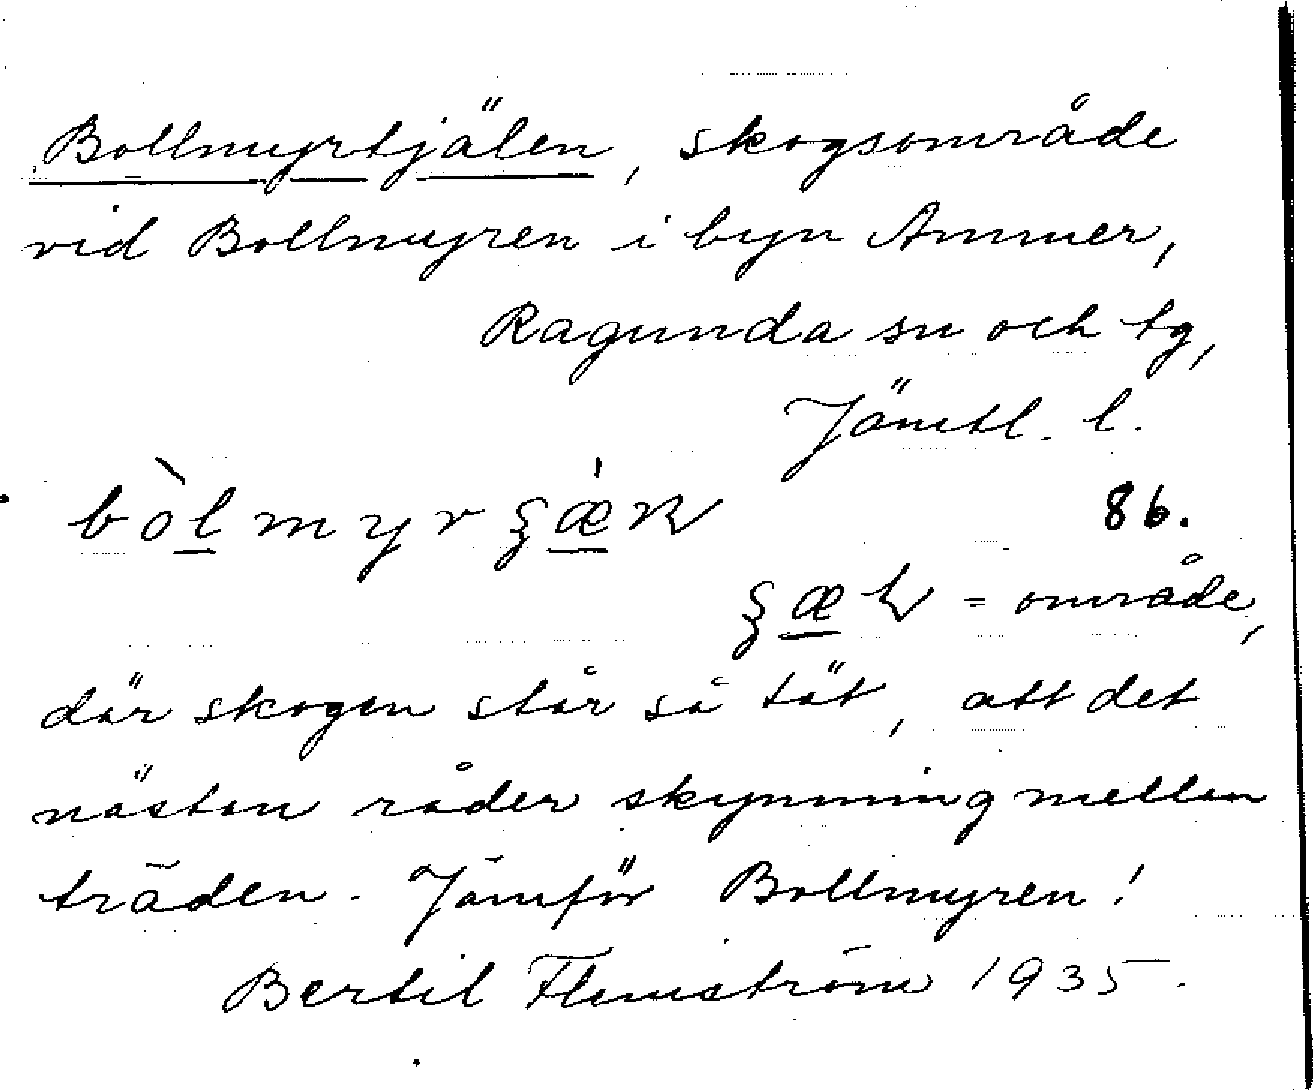 Bollmyrtjälen, skogsområde
vid Bollmyren i byn Ammer,
Ragunda sn och tg,
Jämtl. l.
86.
= område,
där skogen står så tät, att det
nästan råder skymning mellan
träden. Jämför Bollmyren!
Bertil Flemström 1935.